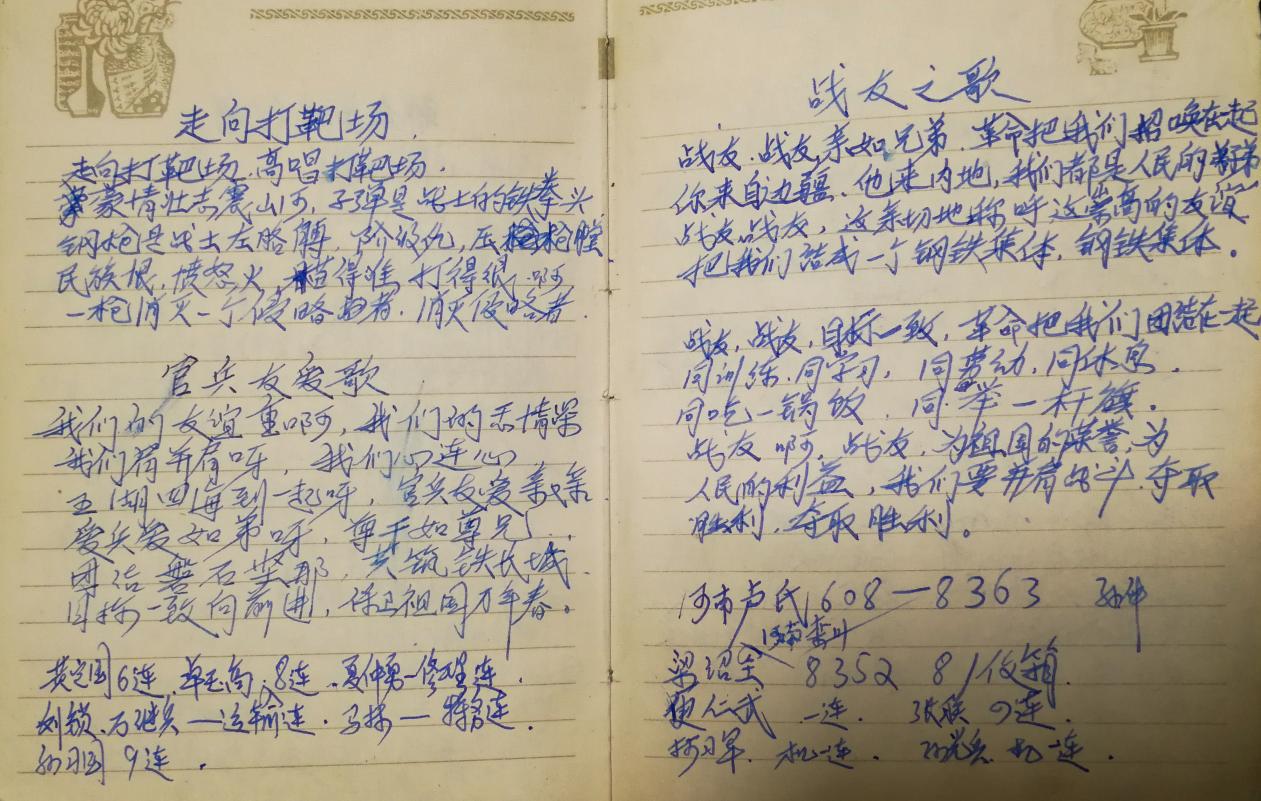 走向打靶场
走向打靶场、高唱打靶场.
豪情壮志震山河, 子弹是战士的铁拳头
钢枪是战士左胳膊, 阶级仇, 压枪膛
民族恨, 愤怒火, 瞄得准, 打得很, 啊
一枪消灭一个侵略者. 消灭侵略者.
官兵友爱歌
我们的友谊重啊, 我们的恩情深
我们肩并肩呀, 我们心连心
五湖四海到一起呀, 官兵友爱亲又亲
爱兵爱如弟呀, 尊干如尊兄,
团结磐石坚那, 共筑铁长城
目标一致向前进, 保卫祖国万年春。
6连, 高 8连. 夏仲勇一修理连.
刘锁、一运输连. 马 一 特务连.
孙国 9连.
战友之歌
战友. 战友, 亲如兄弟. 革命把我们招唤在起
你来自边疆、他来内地, 我们都是人民的子弟
战友战友, 这亲切地称呼这崇高的友谊
把我们结成一个钢铁集体, 钢铁集体.
战友, 战友, 目标一致, 革命把我们团结在一起
同训练, 同学习, 同劳动, 同休息.
同吃一锅饭, 同举一杆旗.
战友啊, 战友, 为祖国的荣誉, 为
人民的利益, 我们要并肩战斗. 夺取
胜利, 夺取胜利。
河南卢氏 608—8363
河南栾川
梁绍 8352 81信箱.
仁武 一连. 张 四连.
机一连. 机一连.